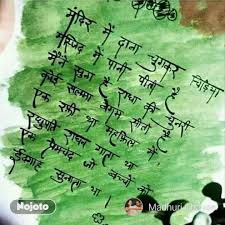 मंदिर में दाना चुगकर चिड़िया
मस्जिद में पानी पीती है
मैंने सुना है राधा की चुनरी
कोई सलमा बेगम सीती है
एक रफी था महफिल में
रघुपति राघव गाता था
एक प्रेमचंद जो बच्चों को
ईदगाह सुनाता था।
Nojoto
Madhuri